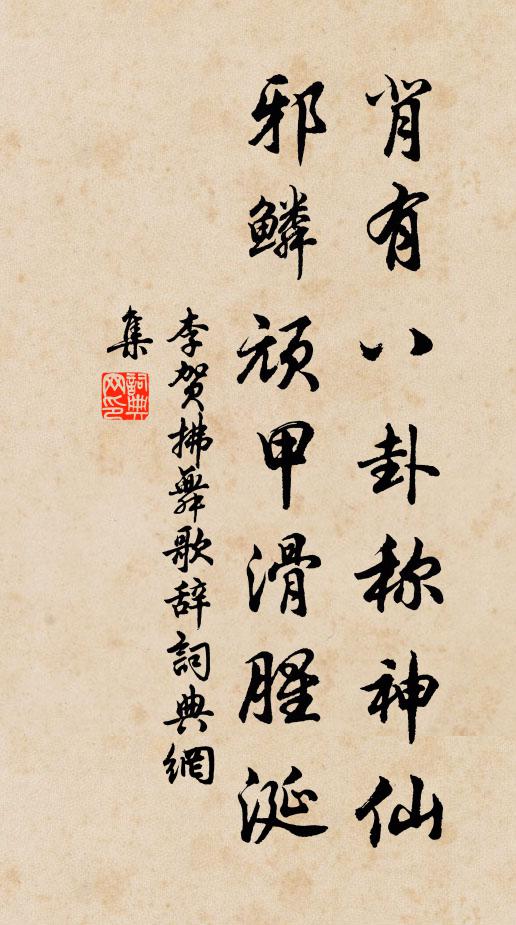 背有八卦称神仙
邪鳞顽甲滑腥涎
李贺拂舞歌辞詞典網
集
詞典
网印